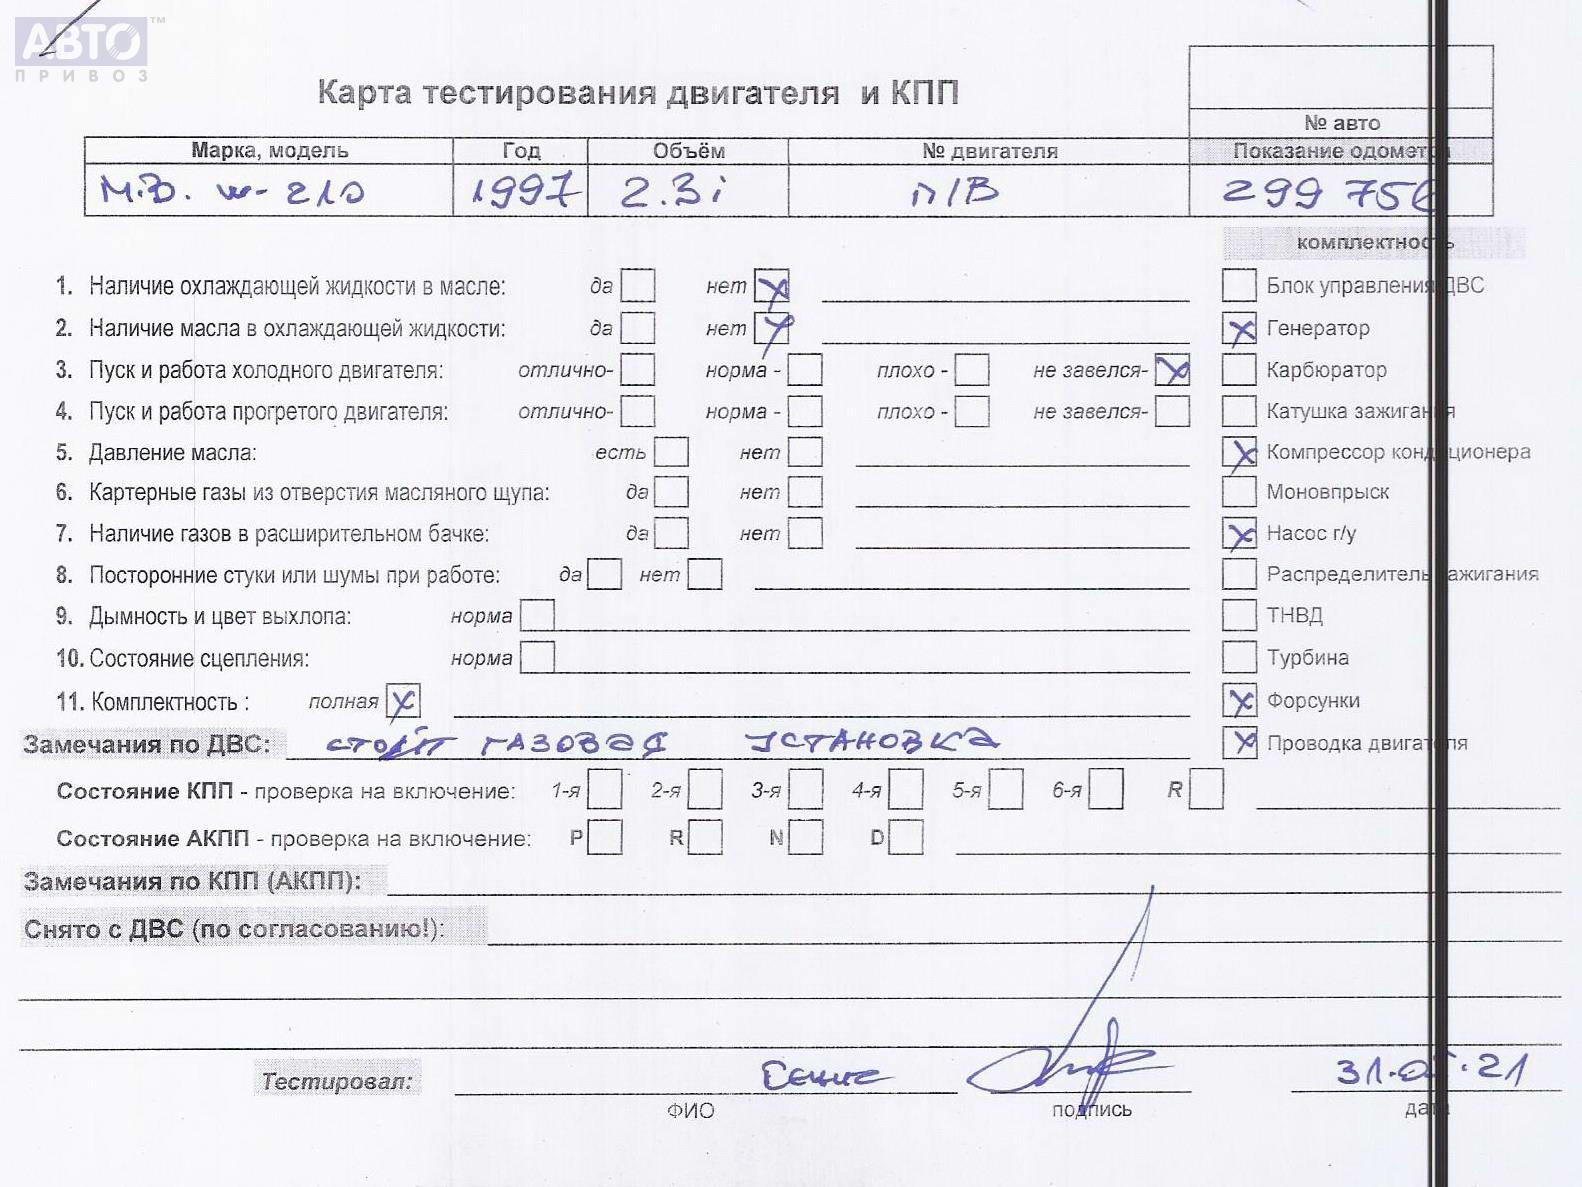 АВТО™
ПРИВОЗ
Карта тестирования двигателя и КПП
№ авто
Марка, модель Год Объём № двигателя Показание одометра
М.Б. w-210 1997 2.3i п/в 299 756
комплектность
1. Наличие охлаждающей жидкости в масле: да нет x Блок управления ДВС
2. Наличие масла в охлаждающей жидкости: да нет x x Генератор
3. Пуск и работа холодного двигателя: отлично- норма - плохо - не завелся- x Карбюратор
4. Пуск и работа прогретого двигателя: отлично- норма - плохо - не завелся- Катушка зажигания
5. Давление масла: есть нет x Компрессор кондиционера
6. Картерные газы из отверстия масляного щупа: да нет Моновпрыск
7. Наличие газов в расширительном бачке: да нет x Насос г/у
8. Посторонние стуки или шумы при работе: да нет Распределитель зажигания
9. Дымность и цвет выхлопа: норма ТНВД
10. Состояние сцепления: норма Турбина
11. Комплектность : полная x x Форсунки
Замечания по ДВС: стоит газовая установка x Проводка двигателя
Состояние КПП - проверка на включение: 1-я 2-я 3-я 4-я 5-я 6-я R
Состояние АКПП - проверка на включение: P R N D
Замечания по КПП (АКПП):
Снято с ДВС (по согласованию!):
Тестировал: 31. .21
ФИО подпись дата